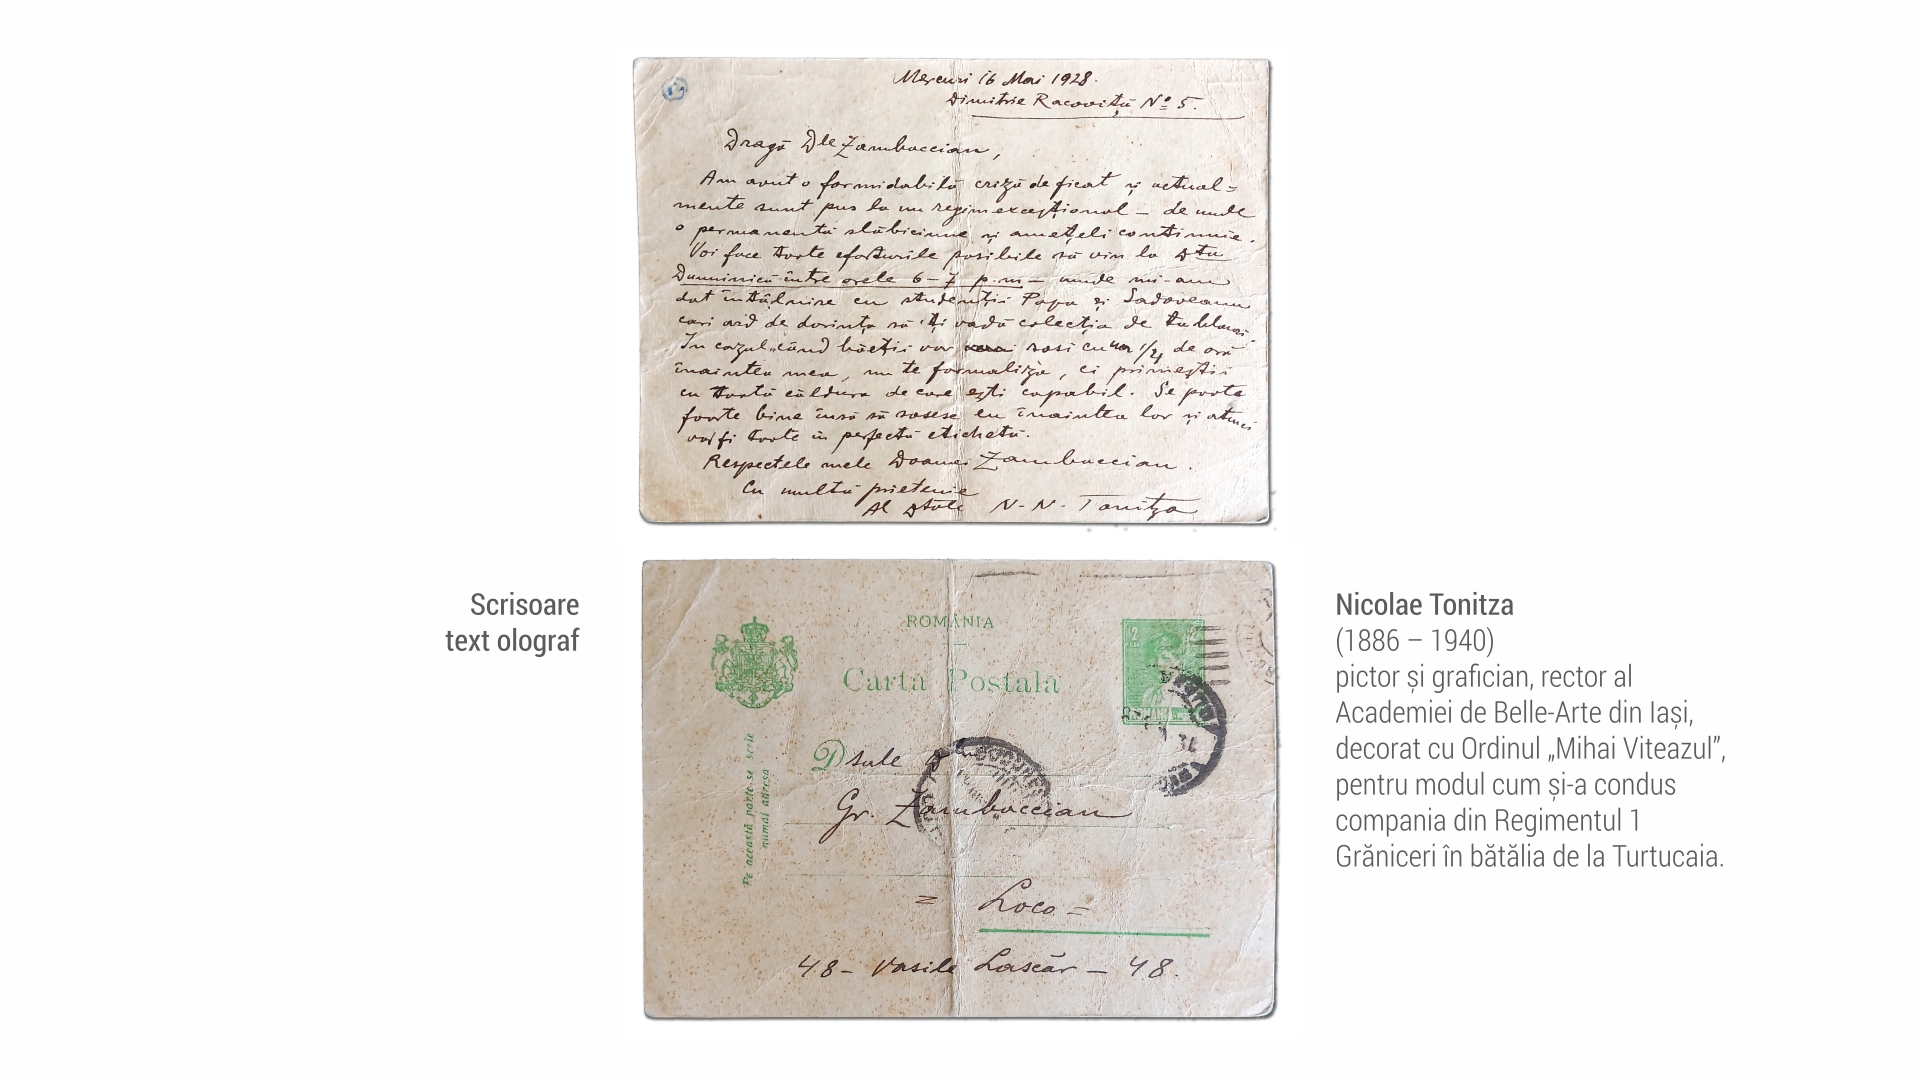 Mercuri 16 Mai 1928.
Dimitrie Racoviță No 5.
Dragă Dle Zambaccian,
Am avut o formidabilă criză de ficat și actual=
mente sunt pus la un regim excepțional – de unde
o permanentă slăbiciune și amețeli continuie.
Voi face toate eforturile posibile să vin la Dta
Duminică între orele 6–7 p.m – unde mi-am
dat întâlnire cu studenții Papa și Sadoveanu
cari ard de dorința să 'ți vadă colecția de tablouri.
In cazul când băeții vor sosi cu un 1/4 de oră
înaintea mea, nu te formaliza, ci primeștii
cu toată căldura de care ești capabil. Se poate
foarte bine însă să sosesc eu înaintea lor și atunci
vor fi toate în perfectă etichetă.
Respectele mele Doamnei Zambaccian.
Cu multă prietenie
Al Dtale N-N-Tonitza
Scrisoare
text olograf
ROMÂNIA
Carta Postala
2
Pe această parte se scrie
numai adresa
Dsale
Gr. Zambaccian
= Loco =
48 – Vasile Lascăr – 48.
Nicolae Tonitza
(1886 – 1940)
pictor și grafician, rector al
Academiei de Belle-Arte din Iași,
decorat cu Ordinul „Mihai Viteazul”,
pentru modul cum și-a condus
compania din Regimentul 1
Grăniceri în bătălia de la Turtucaia.